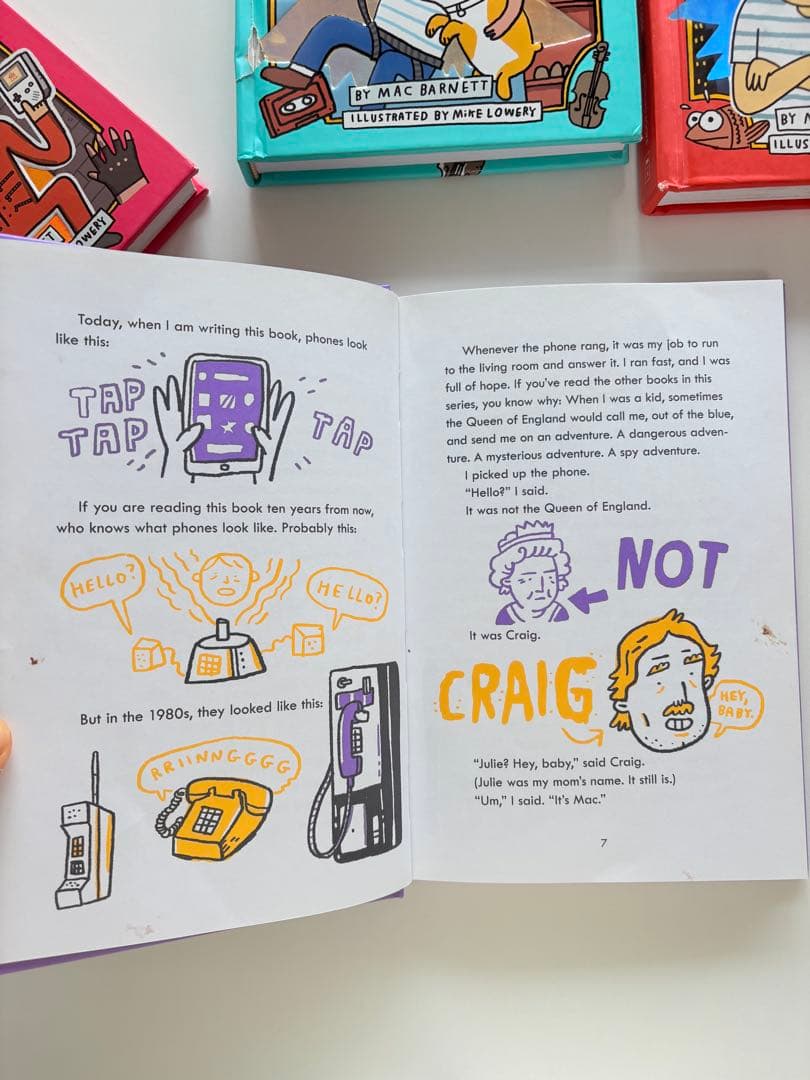 BY MAC BARNETT
ILLUSTRATED BY MIKE LOWERY
LOWERY
BY
ILLUS
Today, when I am writing this book, phones look
like this:
TAP
TAP
TAP
If you are reading this book ten years from now,
who knows what phones look like. Probably this:
HELLO?
HELLO?
But in the 1980s, they looked like this:
RRIINNGGGG
Whenever the phone rang, it was my job to run
to the living room and answer it. I ran fast, and I was
full of hope. If you've read the other books in this
series, you know why: When I was a kid, sometimes
the Queen of England would call me, out of the blue,
and send me on an adventure. A dangerous adven-
ture. A mysterious adventure. A spy adventure.
I picked up the phone.
“Hello?” I said.
It was not the Queen of England.
NOT
It was Craig.
CRAIG
HEY,
BABY.
“Julie? Hey, baby,” said Craig.
(Julie was my mom's name. It still is.)
“Um,” I said. “It's Mac.”
7